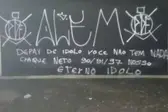 AHEM
DEPOIS DE IDOLO VOCE NÃO TEM NADA
CHAQUE NETO 90/91/92 NOSSO
ETERNO IDOLO